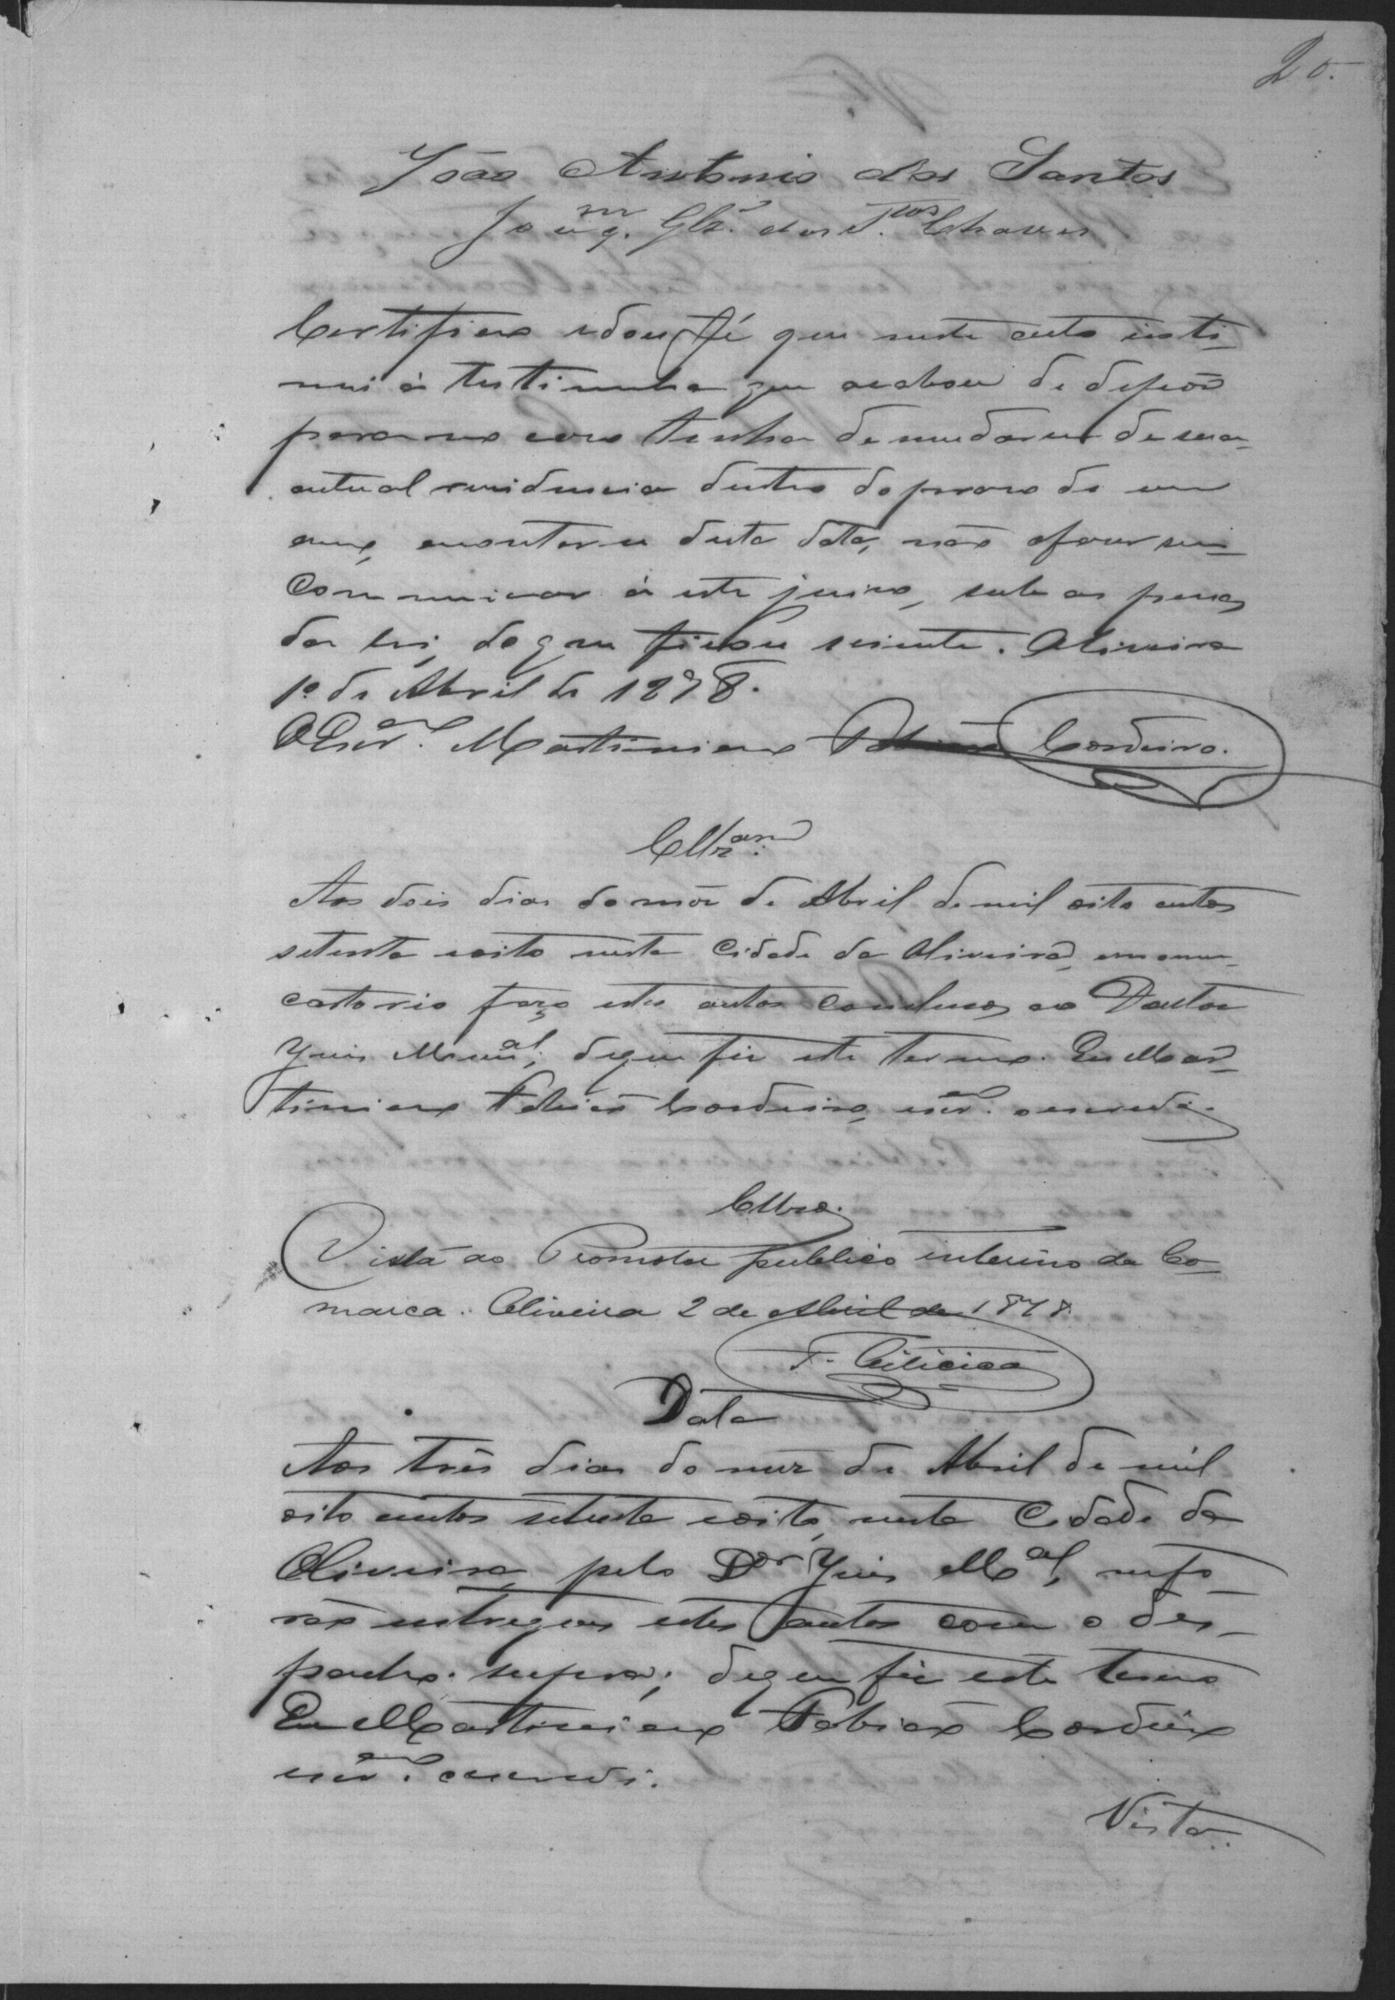 20.
João Antonio dos Santos
Joaq.m Glz. dos S.tos Chaves
Certifico e dou fé que neste acto inti-
mei á testimunha que acabou de depôr
para no caso tenha de mudar-se de sua
actual residencia dentro do praso de um
anno, a contar-se desta data, não o fazer sem
communicar á este juiso, sob as penas
da lei, do que ficou sciente. Oliveira
1º de Abril de 1878.
O Escr.am Martiniano Fabiano Cordeiro.
Clz.am
Aos dois dias do mez de Abril de mil oito centos
setenta e oito nesta Cidade da Oliveira, em meu
cartorio faço estes autos conclusos ao Doutor
Juis Mun.al; de que fiz este termo. Eu Mar-
tiniano Fabiano Cordeiro, escr.am o escrevi.
Clzo.
Vista ao Promotor publico interino da Co-
marca. Oliveira 2 de Abril de 1878.
Data
Aos três dias do mez de Abril de mil
oito centos setenta e oito, nesta Cidade da
Oliveira, pelo D.or Juis M.al, me fo-
rão entregues estes autos com o des-
pacho supra; de que fiz este termo
Eu Martiniano Fabiano Cordeiro
escr.am o escrevi.
Vista.